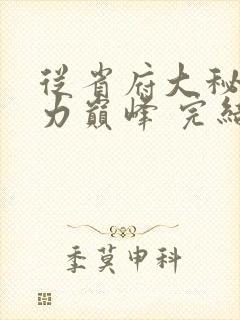 從省府大秘
力巔峰 完結
季莫申科